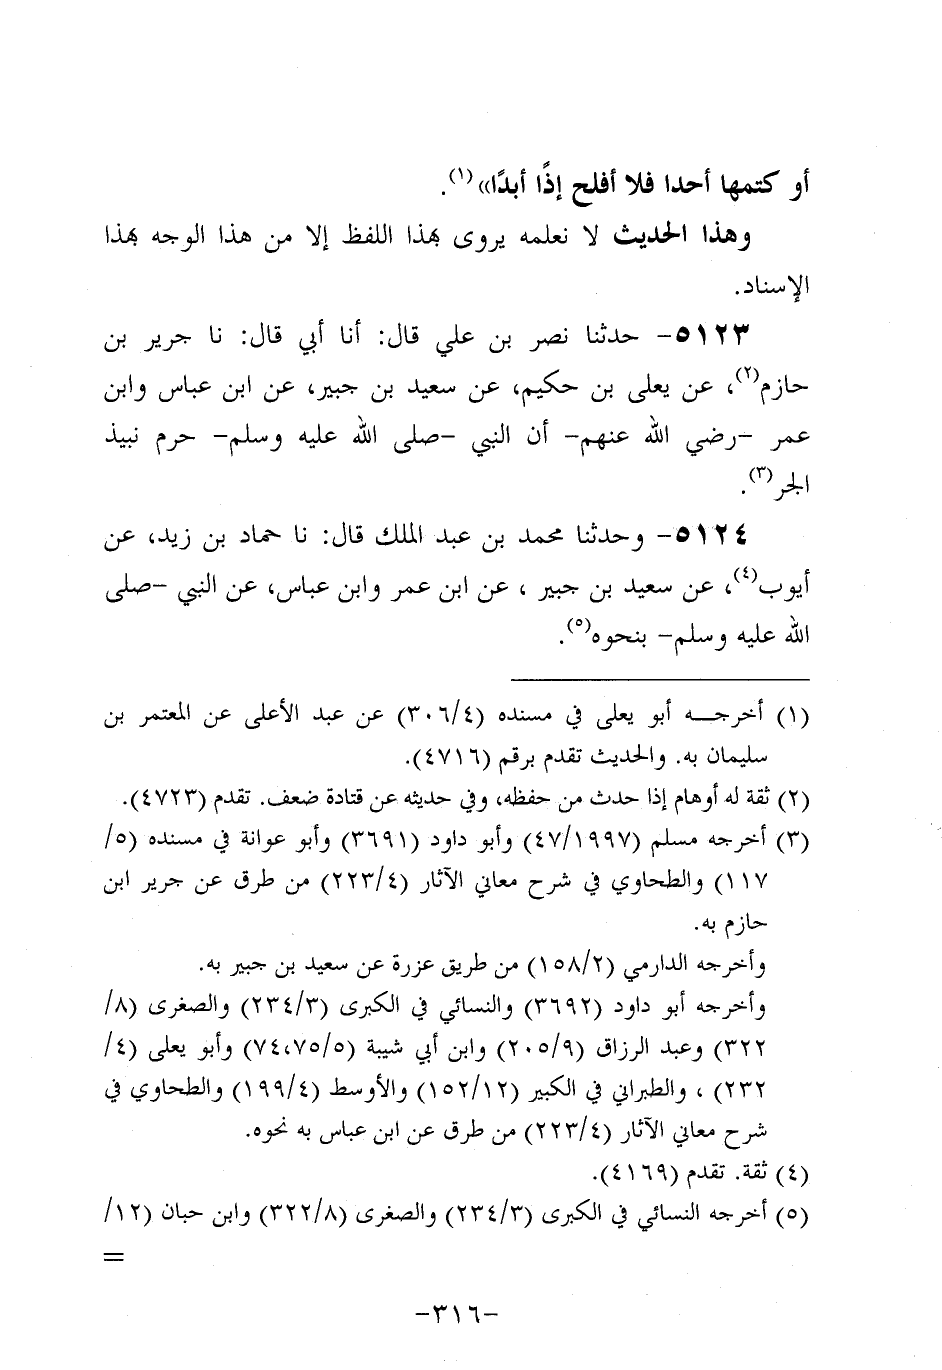 أو كتمها أحدا فلا أفلح إذًا أبدًا»(١).
وهذا الحديث لا نعلمه يروى بهذا اللفظ إلا من هذا الوجه بهذا
الإسناد.
٥١٢٣- حدثنا نصر بن علي قال: أنا أبي قال: نا جرير بن
حازم(٢)، عن يعلى بن حكيم، عن سعيد بن جبير، عن ابن عباس وابن
عمر -رضي الله عنهم- أن النبي -صلى الله عليه وسلم- حرم نبيذ
الجر(٣).
٥١٢٤- وحدثنا محمد بن عبد الملك قال: نا حماد بن زيد، عن
أيوب(٤)، عن سعيد بن جبير ، عن ابن عمر وابن عباس، عن النبي -صلى
الله عليه وسلم- بنحوه(٥).
(١) أخرجـــه أبو يعلى في مسنده (٣٠٦/٤) عن عبد الأعلى عن المعتمر بن
سليمان به. والحديث تقدم برقم (٤٧١٦).
(٢) ثقة له أوهام إذا حدث من حفظه، وفي حديثه عن قتادة ضعف. تقدم (٤٧٢٣).
(٣) أخرجه مسلم (٤٧/١٩٩٧) وأبو داود (٣٦٩١) وأبو عوانة في مسنده (٥/
١١٧) والطحاوي في شرح معاني الآثار (٢٢٣/٤) من طرق عن جرير ابن
حازم به.
وأخرجه الدارمي (١٥٨/٢) من طريق عزرة عن سعيد بن جبير به.
وأخرجه أبو داود (٣٦٩٢) والنسائي في الكبرى (٢٣٤/٣) والصغرى (٨/
٣٢٢) وعبد الرزاق (٢٠٥/٩) وابن أبي شيبة (٧٤،٧٥/٥) وأبو يعلى (٤/
٢٣٢) ، والطبراني في الكبير (١٥٢/١٢) والأوسط (١٩٩/٤) والطحاوي في
شرح معاني الآثار (٢٢٣/٤) من طرق عن ابن عباس به نحوه.
(٤) ثقة. تقدم (٤١٦٩).
(٥) أخرجه النسائي في الكبرى (٢٣٤/٣) والصغرى (٣٢٢/٨) وابن حبان (١٢/
=
-٣١٦-